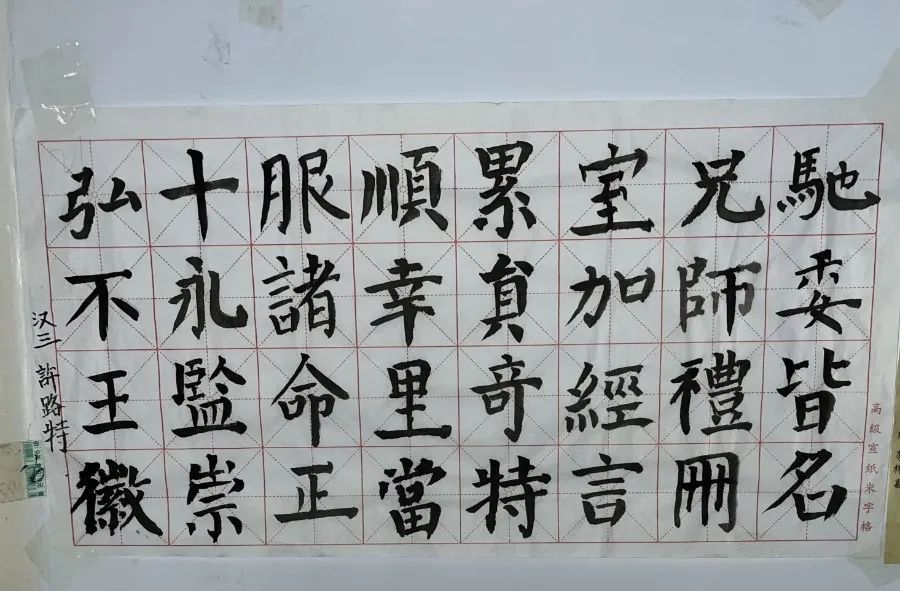 馳委皆名
兄師禮冊
室加經言
累真奇特
順幸里當
服諸命正
十永監崇
弘不王徽
汉三 許路特
高级宣纸米字格